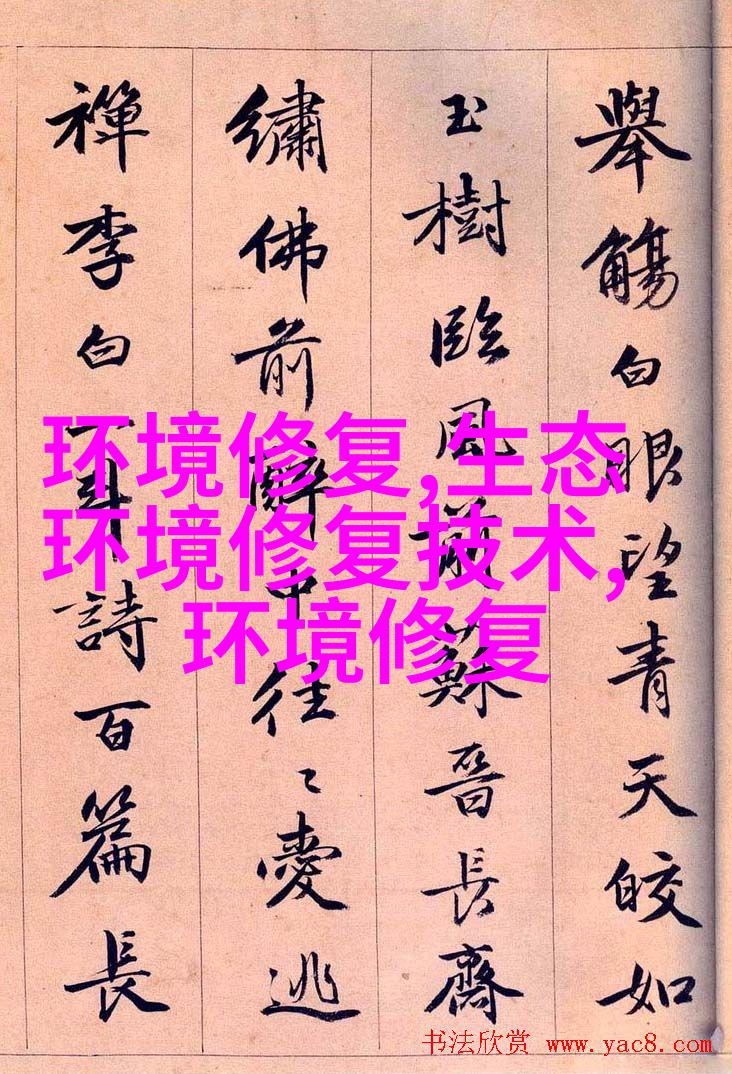 舉觴白眼望青天皎如
玉樹臨風前蘇晉長齋
繡佛前醉中往〻愛逃
禪李白一斗詩百篇長
环境修复,生态
环境修复技术,
环境修复
书法欣赏 www.yac8.com